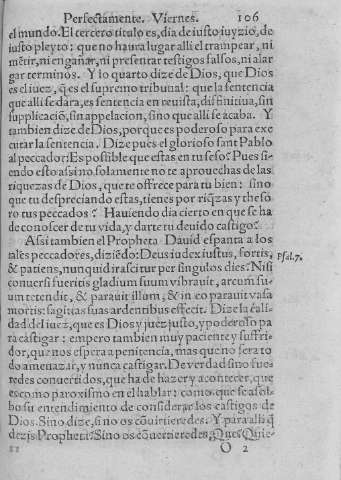 Perfectamente. Viernes. 106
el mundo. El tercero titulo es, dia de iusto iuyzio, de
iusto pleyto: que no haura lugar alli el trampear, ni
mẽtir, ni engañar, ni presentar testigos falsos, ni alar
gar terminos. Y lo quarto dize de Dios, que Dios
es el iuez, q̃es el supremo tribunal: que la sentencia
que alli se dara, es sentencia en reuista, diffinitiua, sin
supplicaciõ, sin appelacion, sino que alli se acaba. Y
tambien dize de Dios, porque es poderoso para exe
cutar la sentencia. Dize pues el glorioso sant Pablo
al peccador: Es possible que estas en tu seso? Pues si-
endo esto assi no solamente no te aprouechas de las
riquezas de Dios, que te offrece para tu bien: sino
que tu despreciando estas, tienes por riq̃zas y theso
ro tus peccados? Hauiendo dia cierto en que se ha
de conoscer de tu vida, y darte tu deuido castigo?
Assi tambien el Propheta Dauid espanta a los
tales peccadores, diziẽdo: Deus iudex iustus, fortis, Psal. 7.
& patiens, nunquid irascitur per singulos dies? Nisi
conuersi fueritis gladium suum vibrauit, arcum su-
um tetendit, & parauit illum, & in eo parauit vasa
mortis: sagittas suas ardentibus effecit. Dize la cali
dad del iuez, que es Dios y juez justo, y poderoso pa
ra castigar: empero tambien muy paciente y suffri-
dor, que nos espera a penitencia, mas que no sera to
do amenazar, y nunca castigar. De verdad sino fue-
redes conuertidos, que ha de hazer y acontecer, que
es como paroxismo en el hablar: como que se absol-
bo su entendimiento de considerar los castigos de
Dios. Sino dize, si no os cõuirtieredes? Y para alli q̃
dezis Propheta? Sino os cõuertieredes, Que? Quie-
O 2